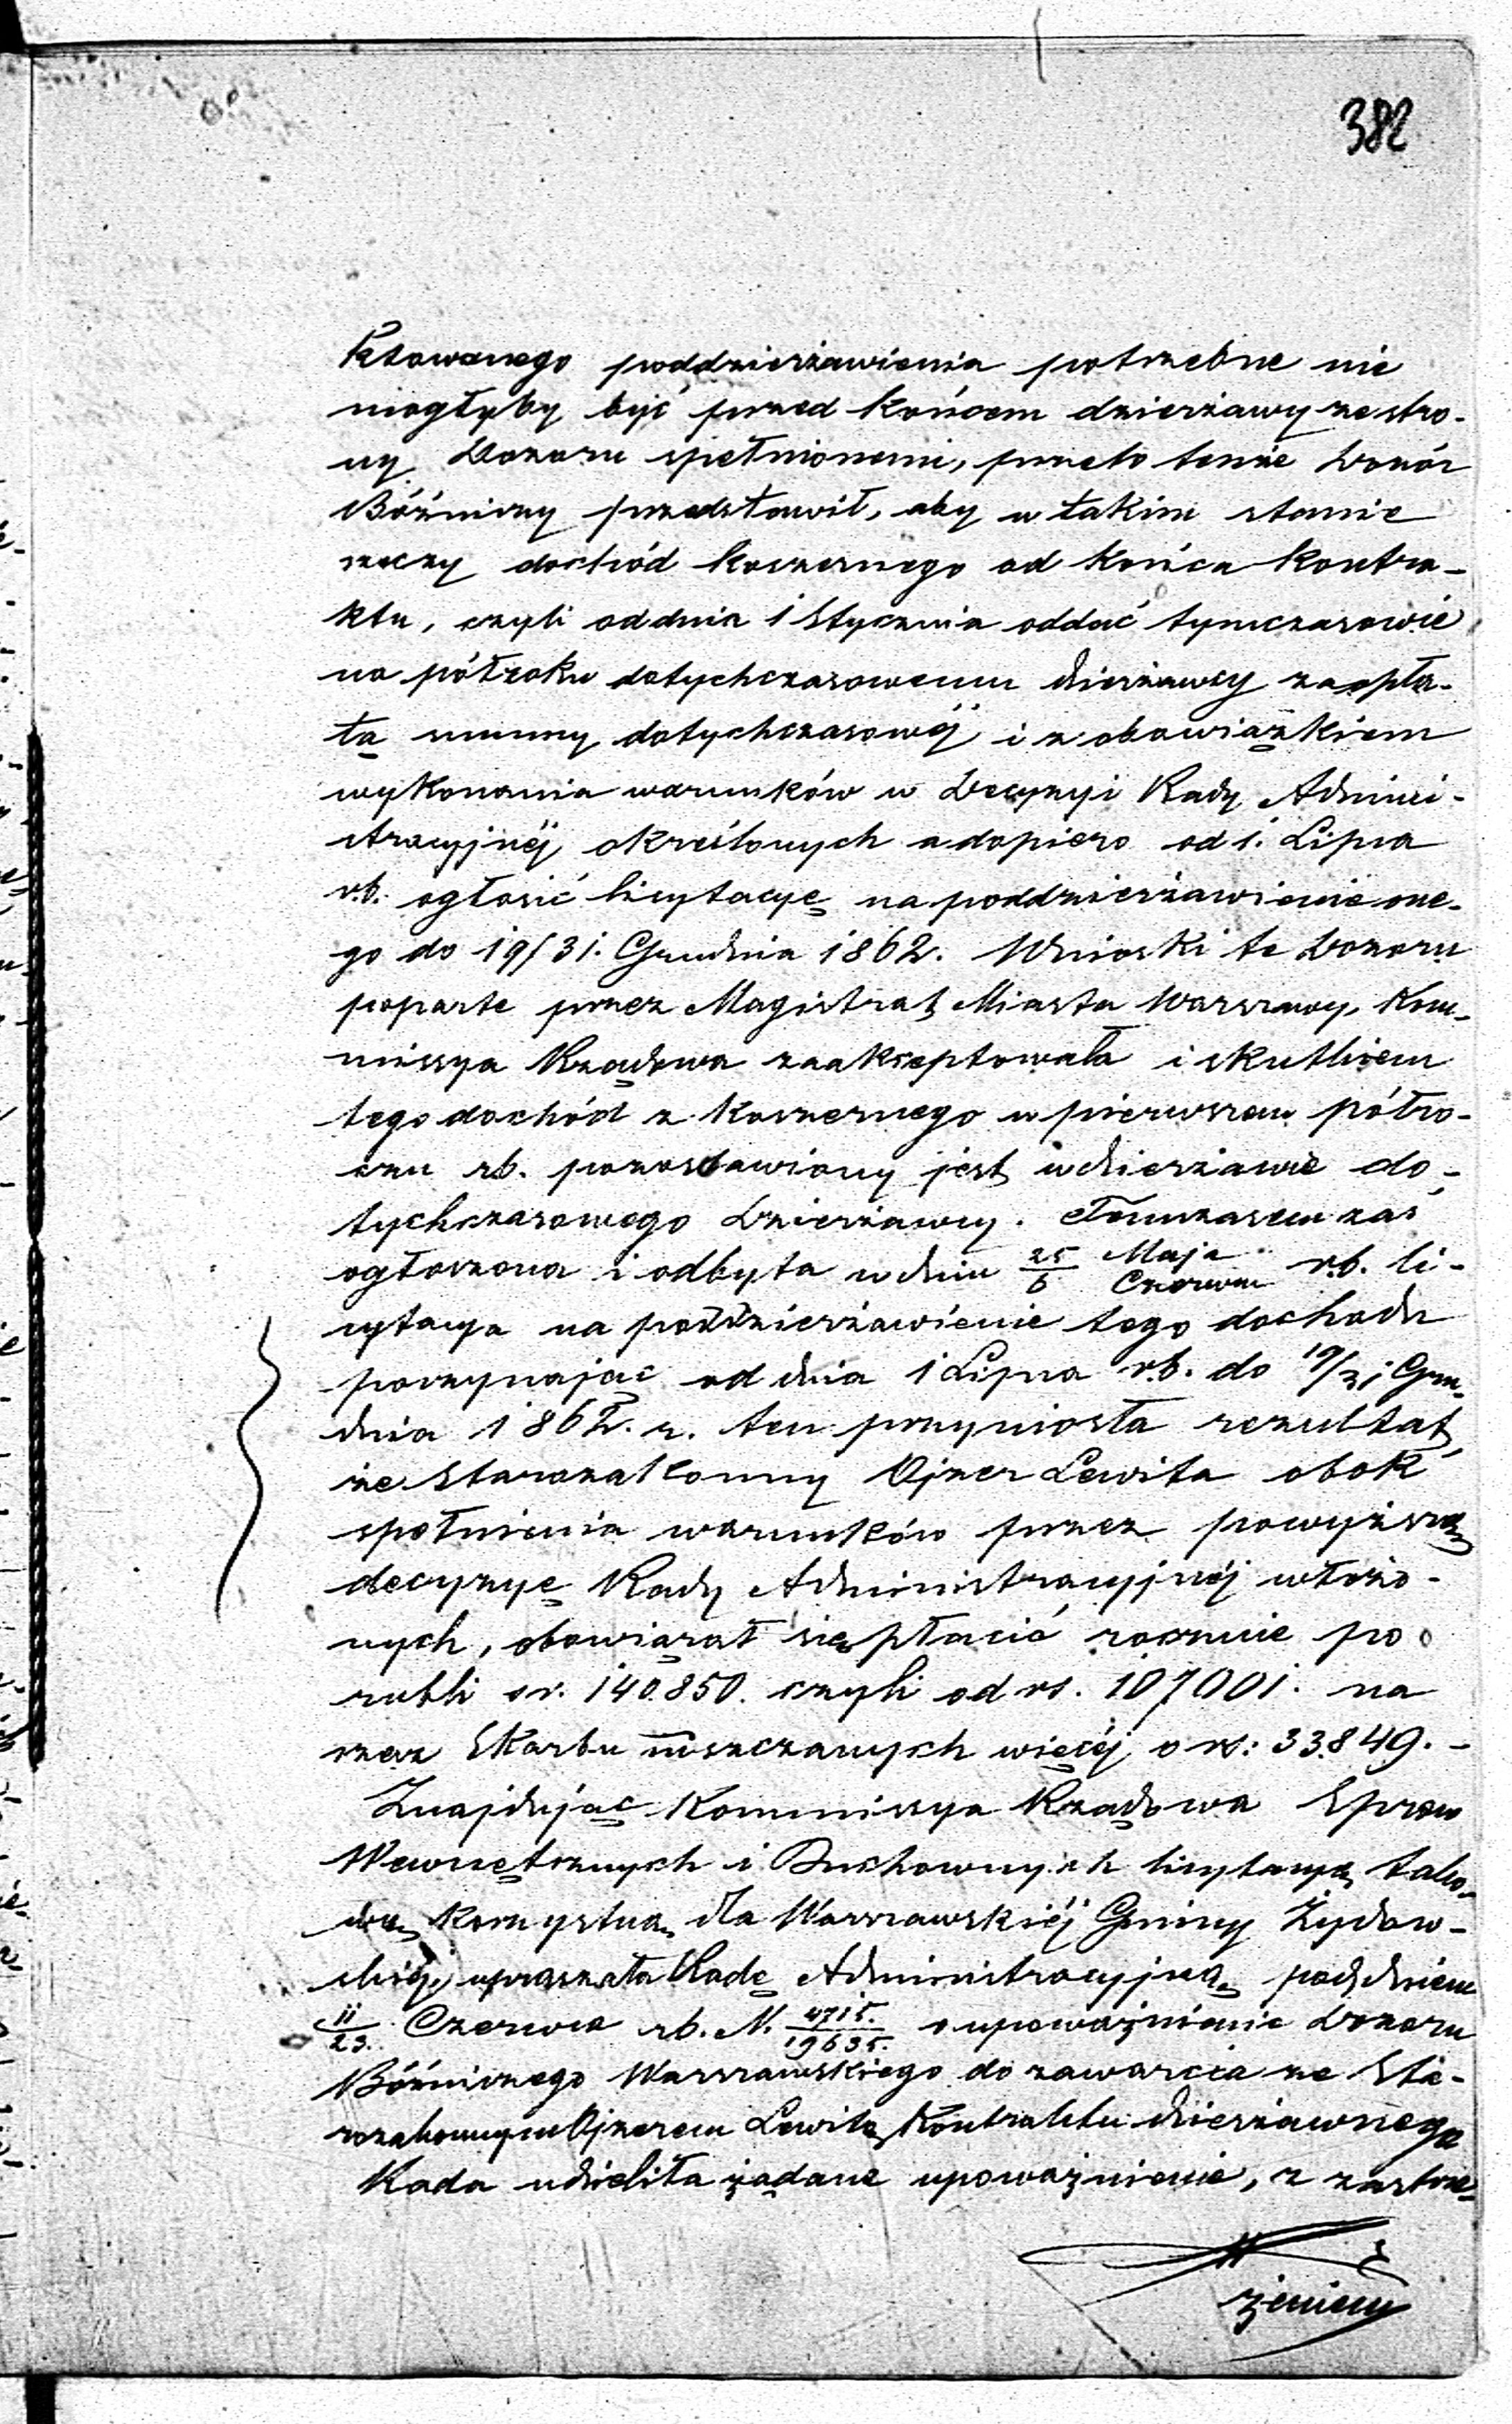 382
ktowanego poddzierżawienia potrzebne nie
mogłyby być przed końcem dzierżawy ze stro-
ny Dozoru spełnionemi, przeto tenże Dozór
Bóżniczy przedstawił, aby w takim stanie
rzeczy dochód koszernego od końca kontra-
ktu, czyli od dnia 1 Stycznia oddać tymczasowie
na półroku dotychczasowemu dzierżawcy za opła-
tą summy dotychczasowéj i z obowiązkiem
wykonania warunków w Decyzyi Rady Admini-
stracyjnéj określonych a dopiero od 1. Lipca
r.b. ogłosić licytacyę na poddzierżawienie one-
go do 19/31. Grudnia 1862. Wnioski te Dozoru
poparte przez Magistrat Miasta Warszawy, Kom-
missya Rządowa zaakceptowała i skutkiem
tego dochód z koszernego w pierwszem półro-
czu rb. pozostawiony jest w dzierżawie do-
tychczasowego Dzierżawcy. Tymczasem zaś
ogłoszona i odbyta w dniu 25/6 Maja/Czerwca r.b. li-
cytacya na poddzierżawienie tego dochodu
poczynając od dnia 1 Lipca r.b. do 19/31 Gru-
dnia 1862. r. ten przyniosła rezultat,
że Starozakonny Ojzer Lewita obok
spełnienia warunków przez powyższą
decyzyę Rady Administracyjnéj włożo-
nych, obowiązał się płacić rocznie po
rubli sr. 140.850. czyli od rs. 107001. na
rzecz Skarbu uiszczanych więcéj o rs: 33.849. -
Znajdując Kommissya Rządowa Spraw
Wewnętrznych i Duchownych licytacyą tako-
wą korzystną dla Warszawskiéj Gminy Żydow-
skiéj, upraszała Radę Administracyjną pod dniem
11/23. Czerwca rb. N. 4715./19635. o upoważnienie Dozoru
Bóżniczego Warszawskiego do zawarcia ze Sta-
rozakonnym Ojzerem Lewitą Kontraktu dzierżawnego
Rada udzieliła żądane upoważnienie, z zastrze-
żeniem